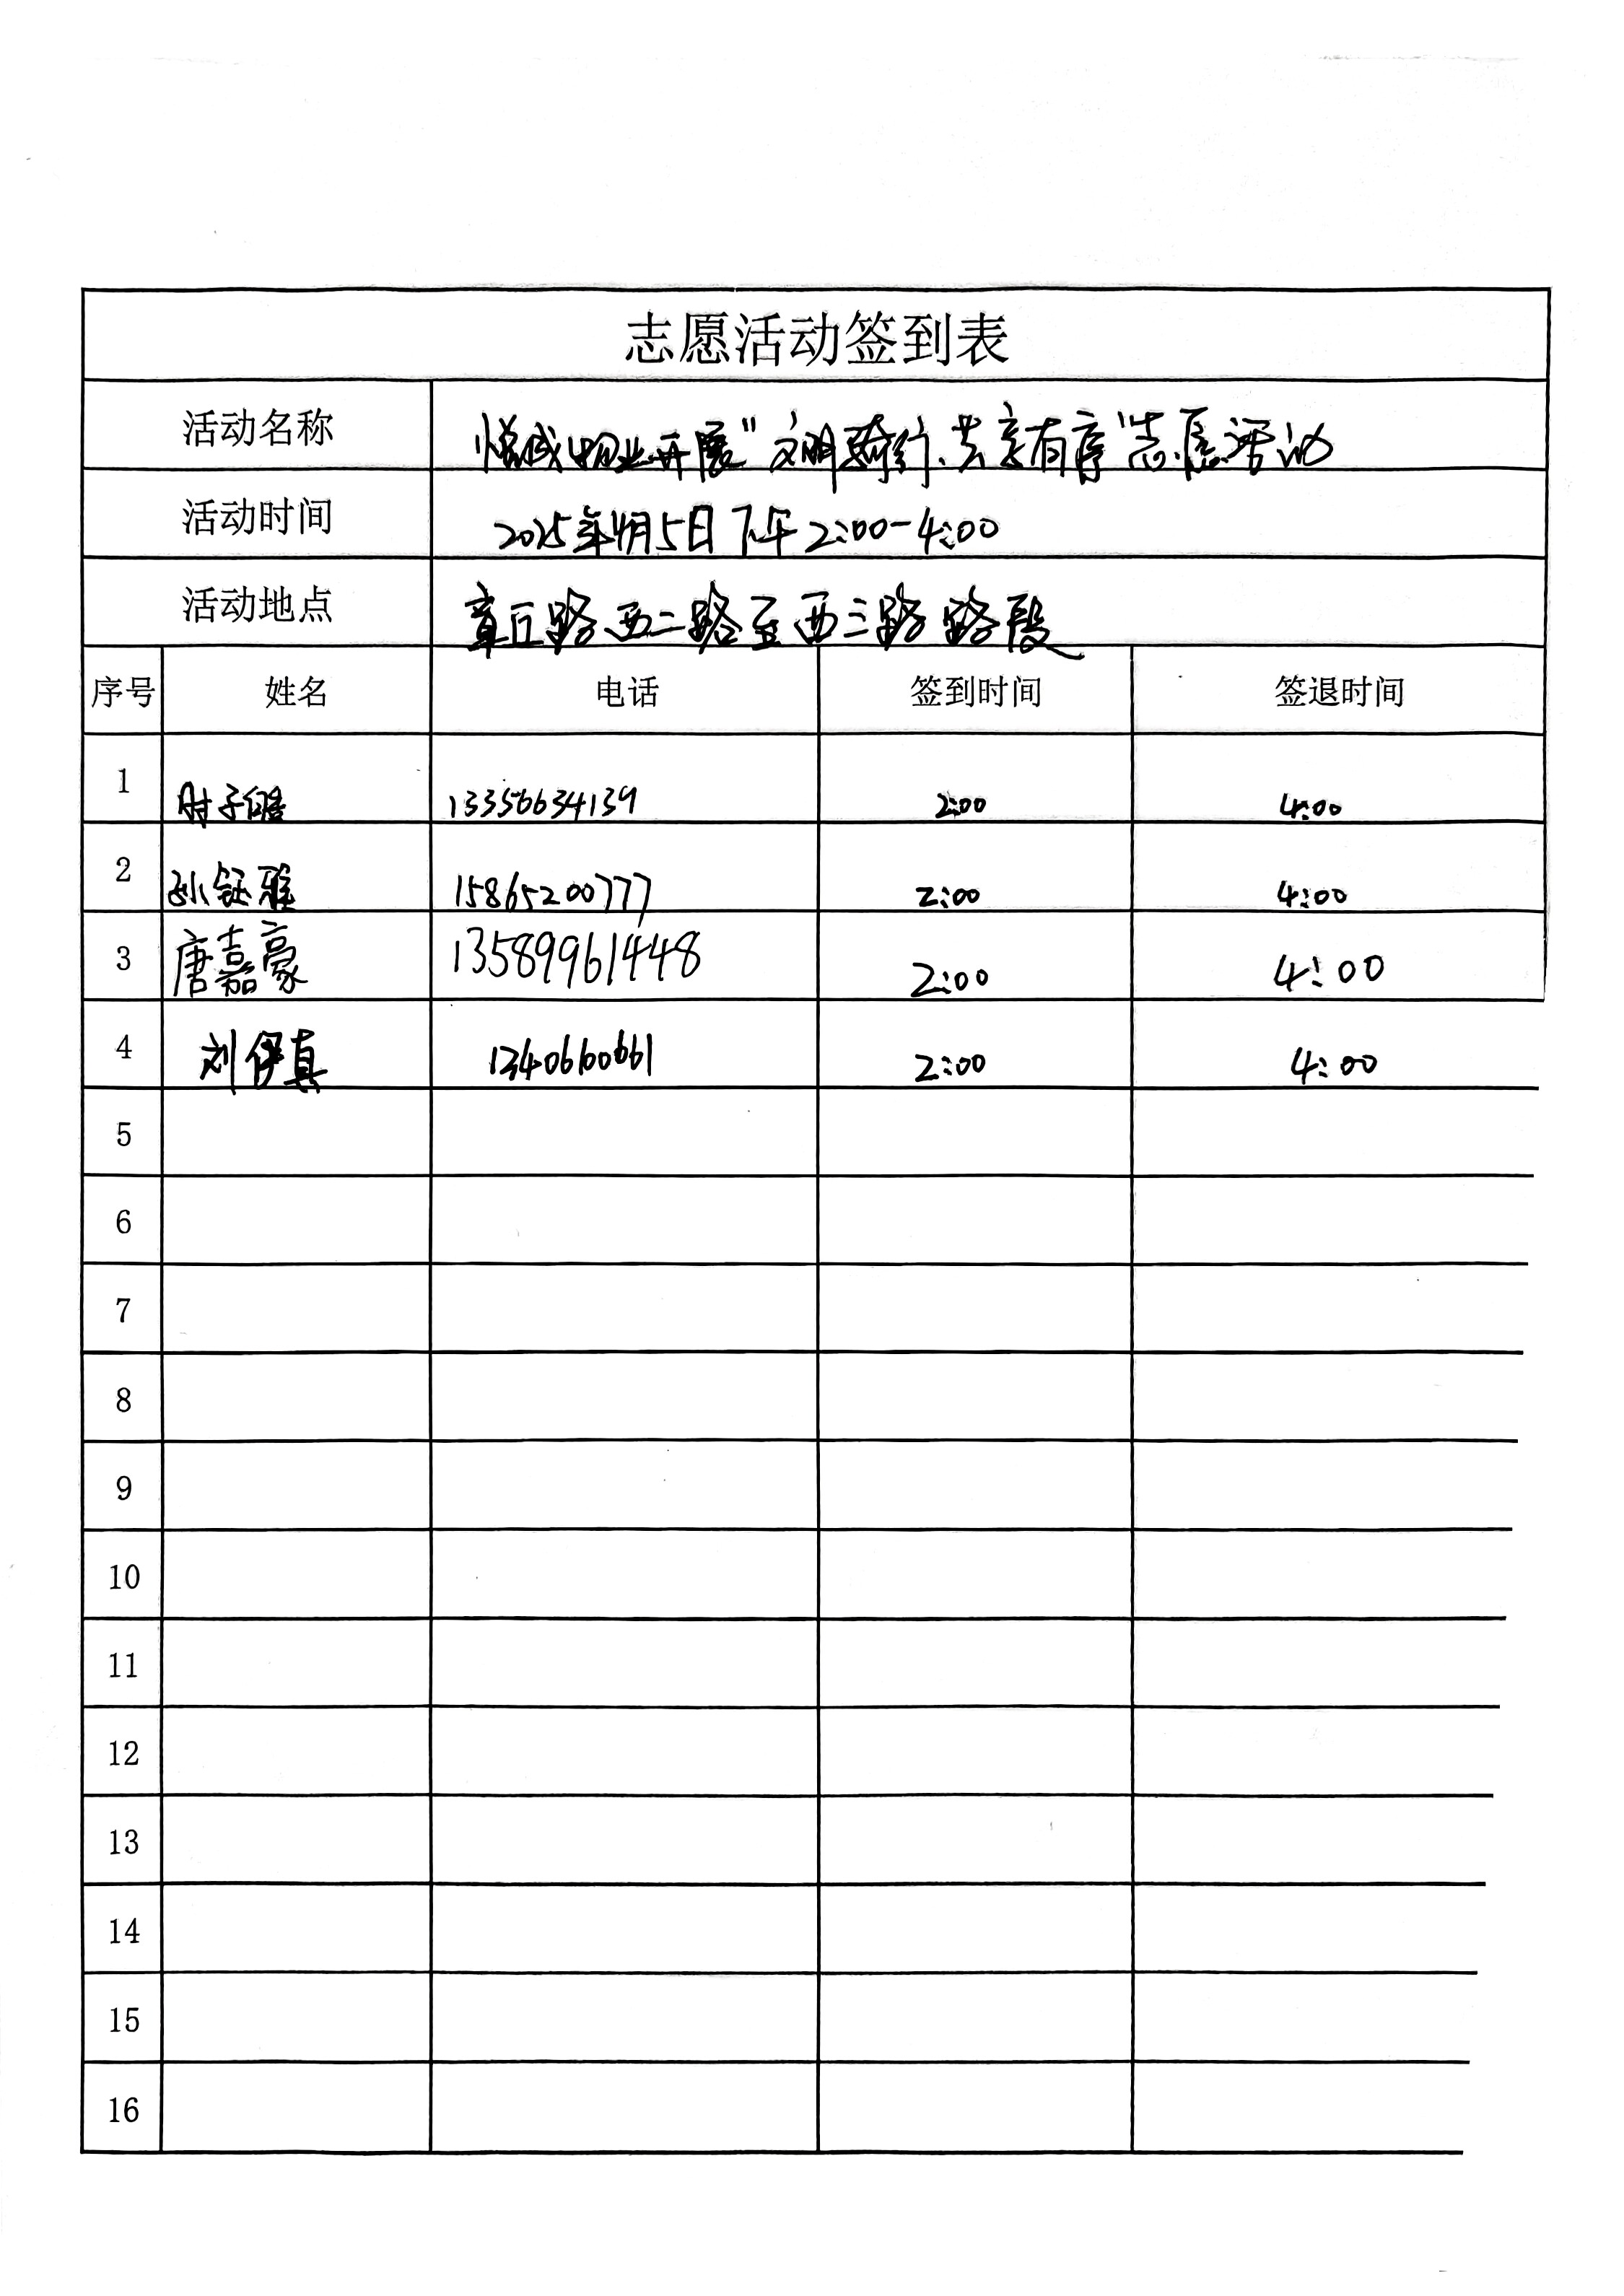 志愿活动签到表
活动名称 悦城物业开展"文明骑行、共享有序"志愿活动
活动时间 2025年4月5日下午2:00-4:00
活动地点 章丘路西二路至西三路路段
序号 姓名 电话 签到时间 签退时间
1 13356634139 2:00 4:00
2 孙钰雅 15865200777 2:00 4:00
3 唐嘉豪 13589961448 2:00 4:00
4 刘伊真 13406160661 2:00 4:00
5
6
7
8
9
10
11
12
13
14
15
16